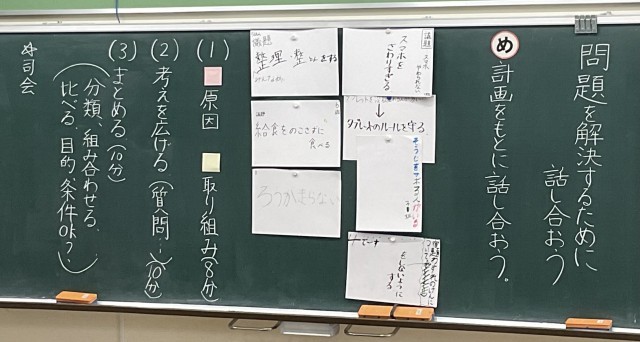 問題を解決するために
話し合おう
め
計画をもとに話し合おう。
議題
スマホを
さわりすぎる
↓
タブレットのルールを守る
しないように
する
議題
整理整とんをする
給食をのこさずに
食べる
ろうかを走らない
(1) 原因 取り組み(8分)
(2) 考えを広げる(質問…)(10分)
(3) まとめる(10分)
(分類、組み合わせる、
比べる、目的、条件OK?)
司会